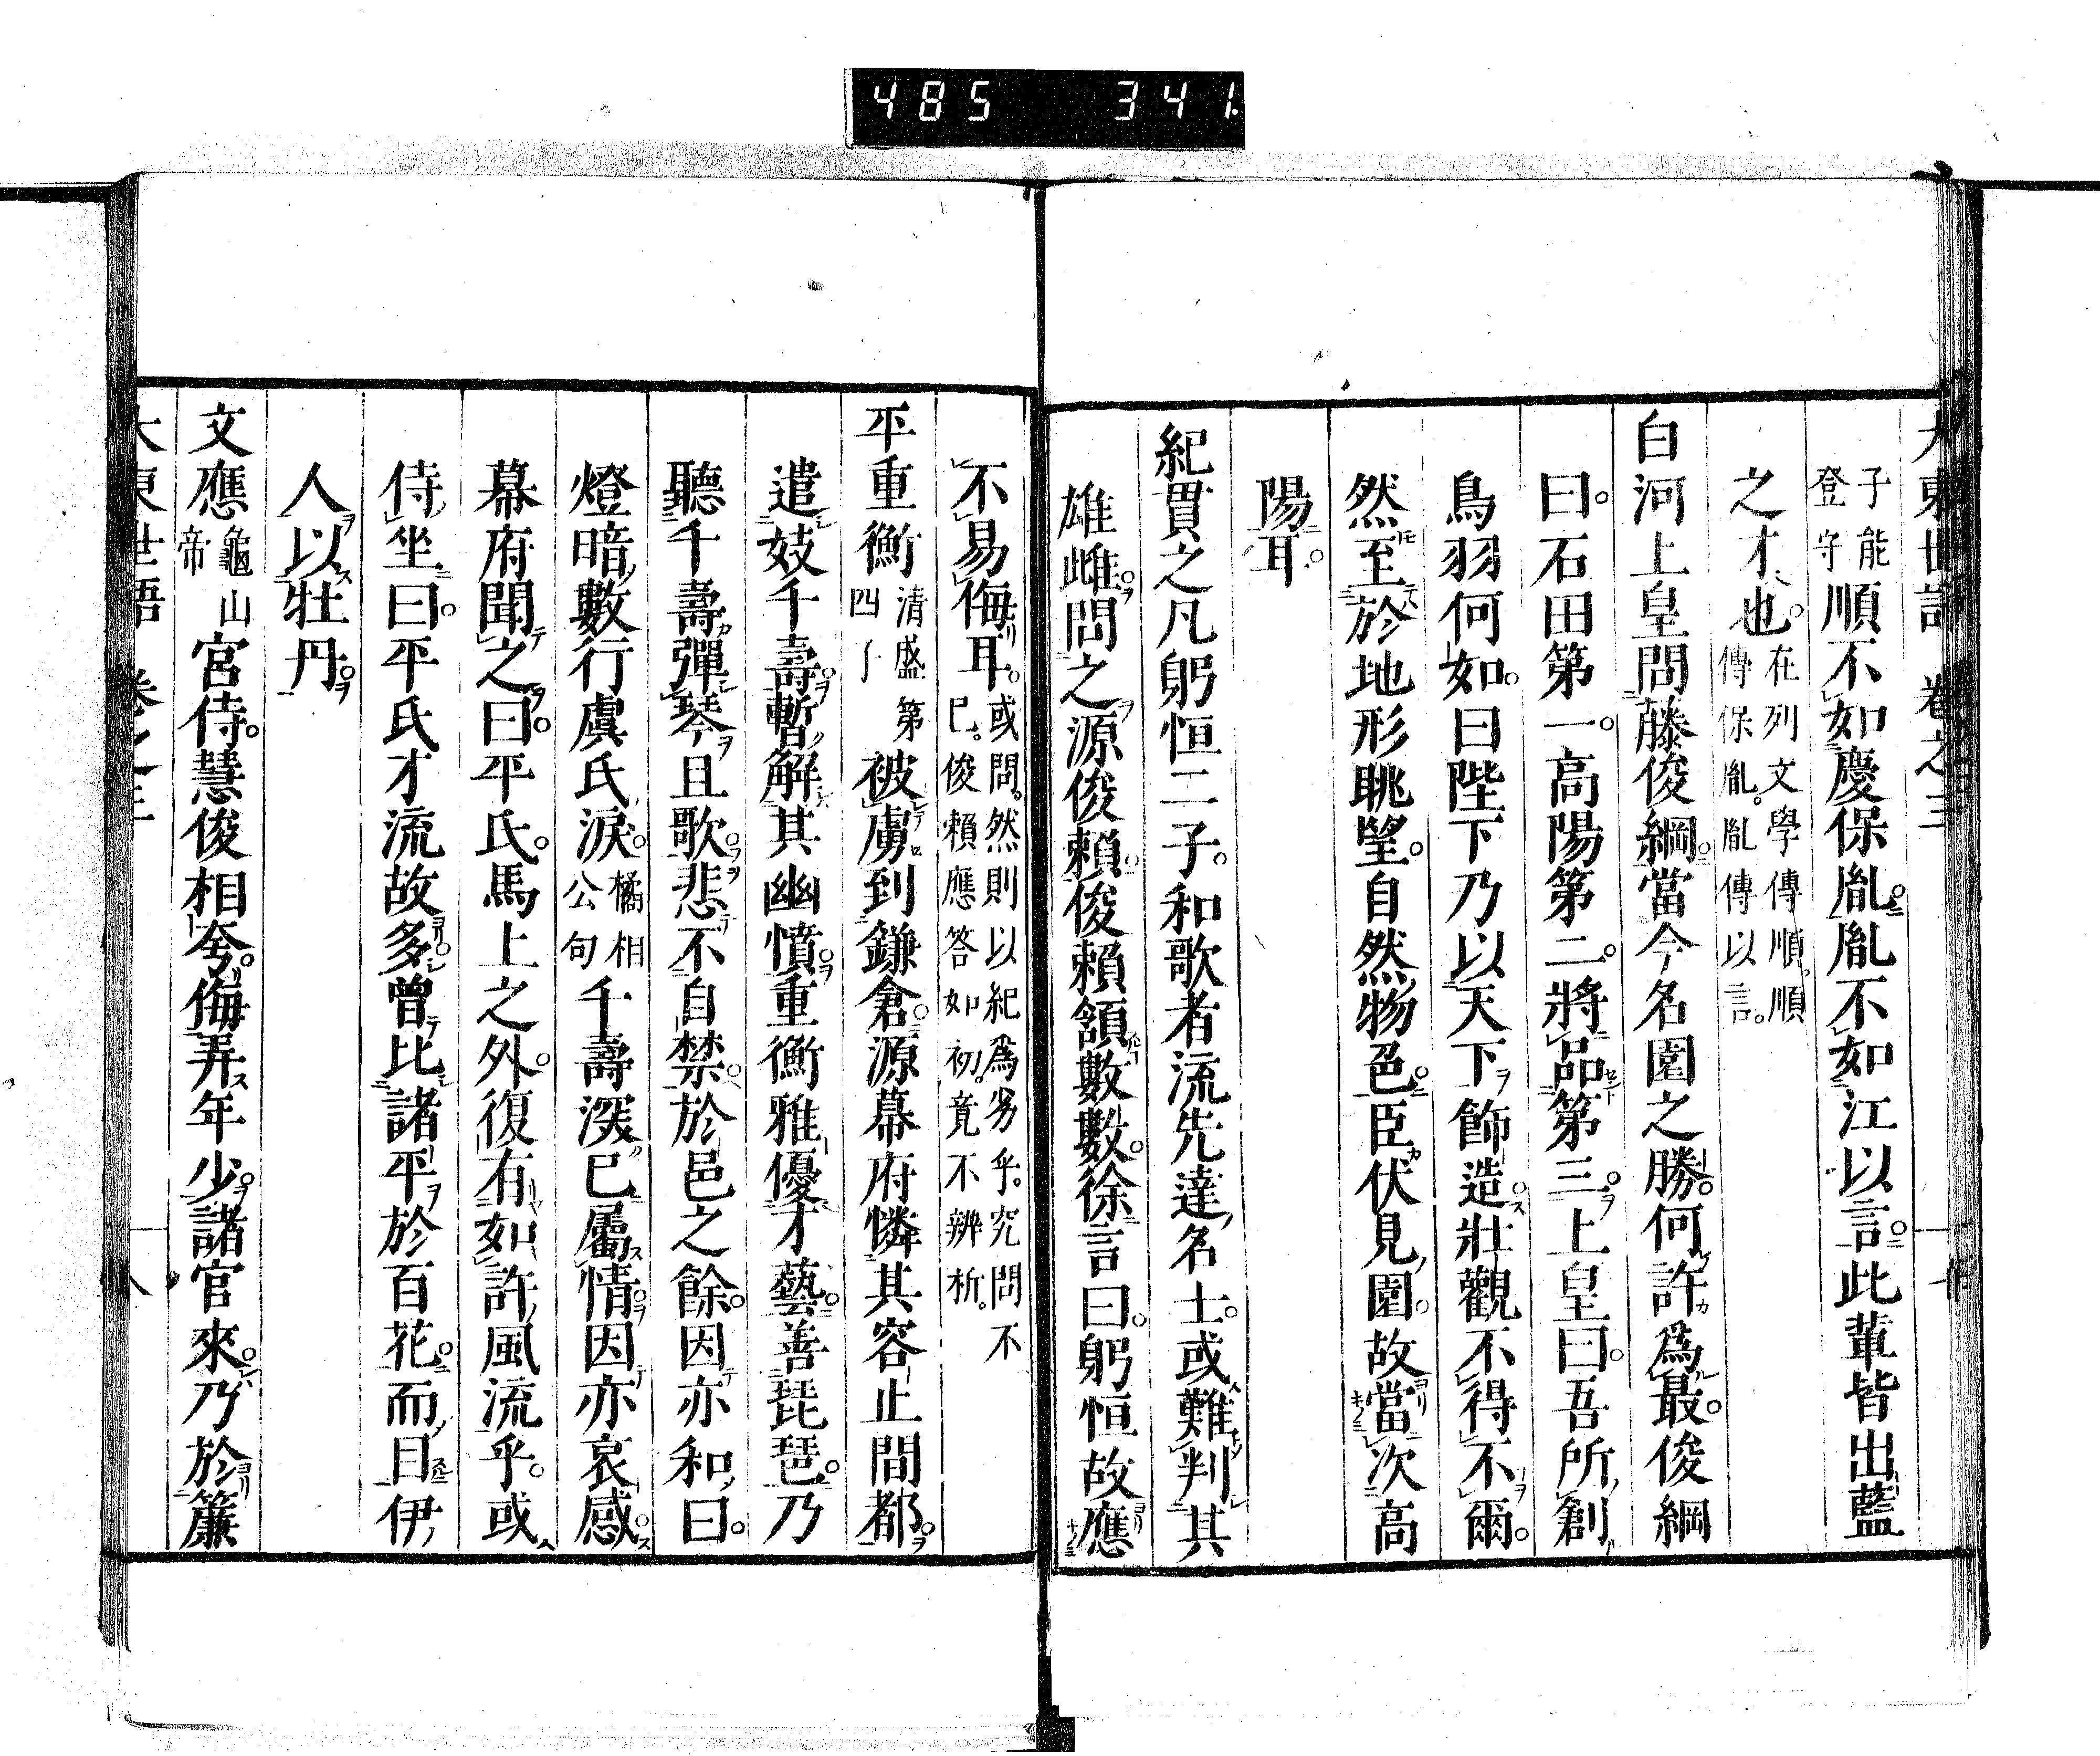 485 341.
大東世語 卷之三
子能登守順不如慶保胤胤不如江以言此輩皆出藍
之才也在列文學傳順順傳保胤胤傳以言
白河上皇問藤俊綱當今名園之勝何許爲最俊綱
曰石田第一高陽第二將品第三上皇曰吾所創
鳥羽何如曰陛下乃以天下飾造壯觀不得不爾
然至於地形眺望自然物色臣伏見園故當次高
陽耳
紀貫之凡躬恒二子和歌者流先達名士或難判其
雄雌問之源俊賴俊賴頷數數徐言曰躬恒故應
不易侮耳或問然則以紀爲劣乎究問不已俊賴應答如初竟不辨析
平重衡清盛第四子被虜到鎌倉源幕府憐其容止間都
遣妓千壽暫解其幽憤重衡雅優才藝善琵琶乃
聽千壽彈琴且歌悲不自禁於邑之餘因亦和曰
燈暗數行虞氏淚橘相公句千壽深已屬情因亦哀感
幕府聞之曰平氏馬上之外復有如許風流乎或
侍坐曰平氏才流故多曾比諸平於百花而目伊
人以牡丹
文應龜山帝宮侍慧俊相夸侮弄年少諸官來乃於簾
大東世語 卷之三 八